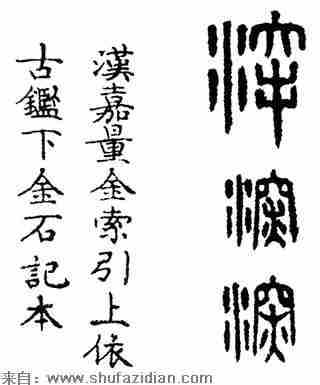 深深深
漢嘉量金索引上依
古鑑下金石記本
来自：www.shufazidian.com